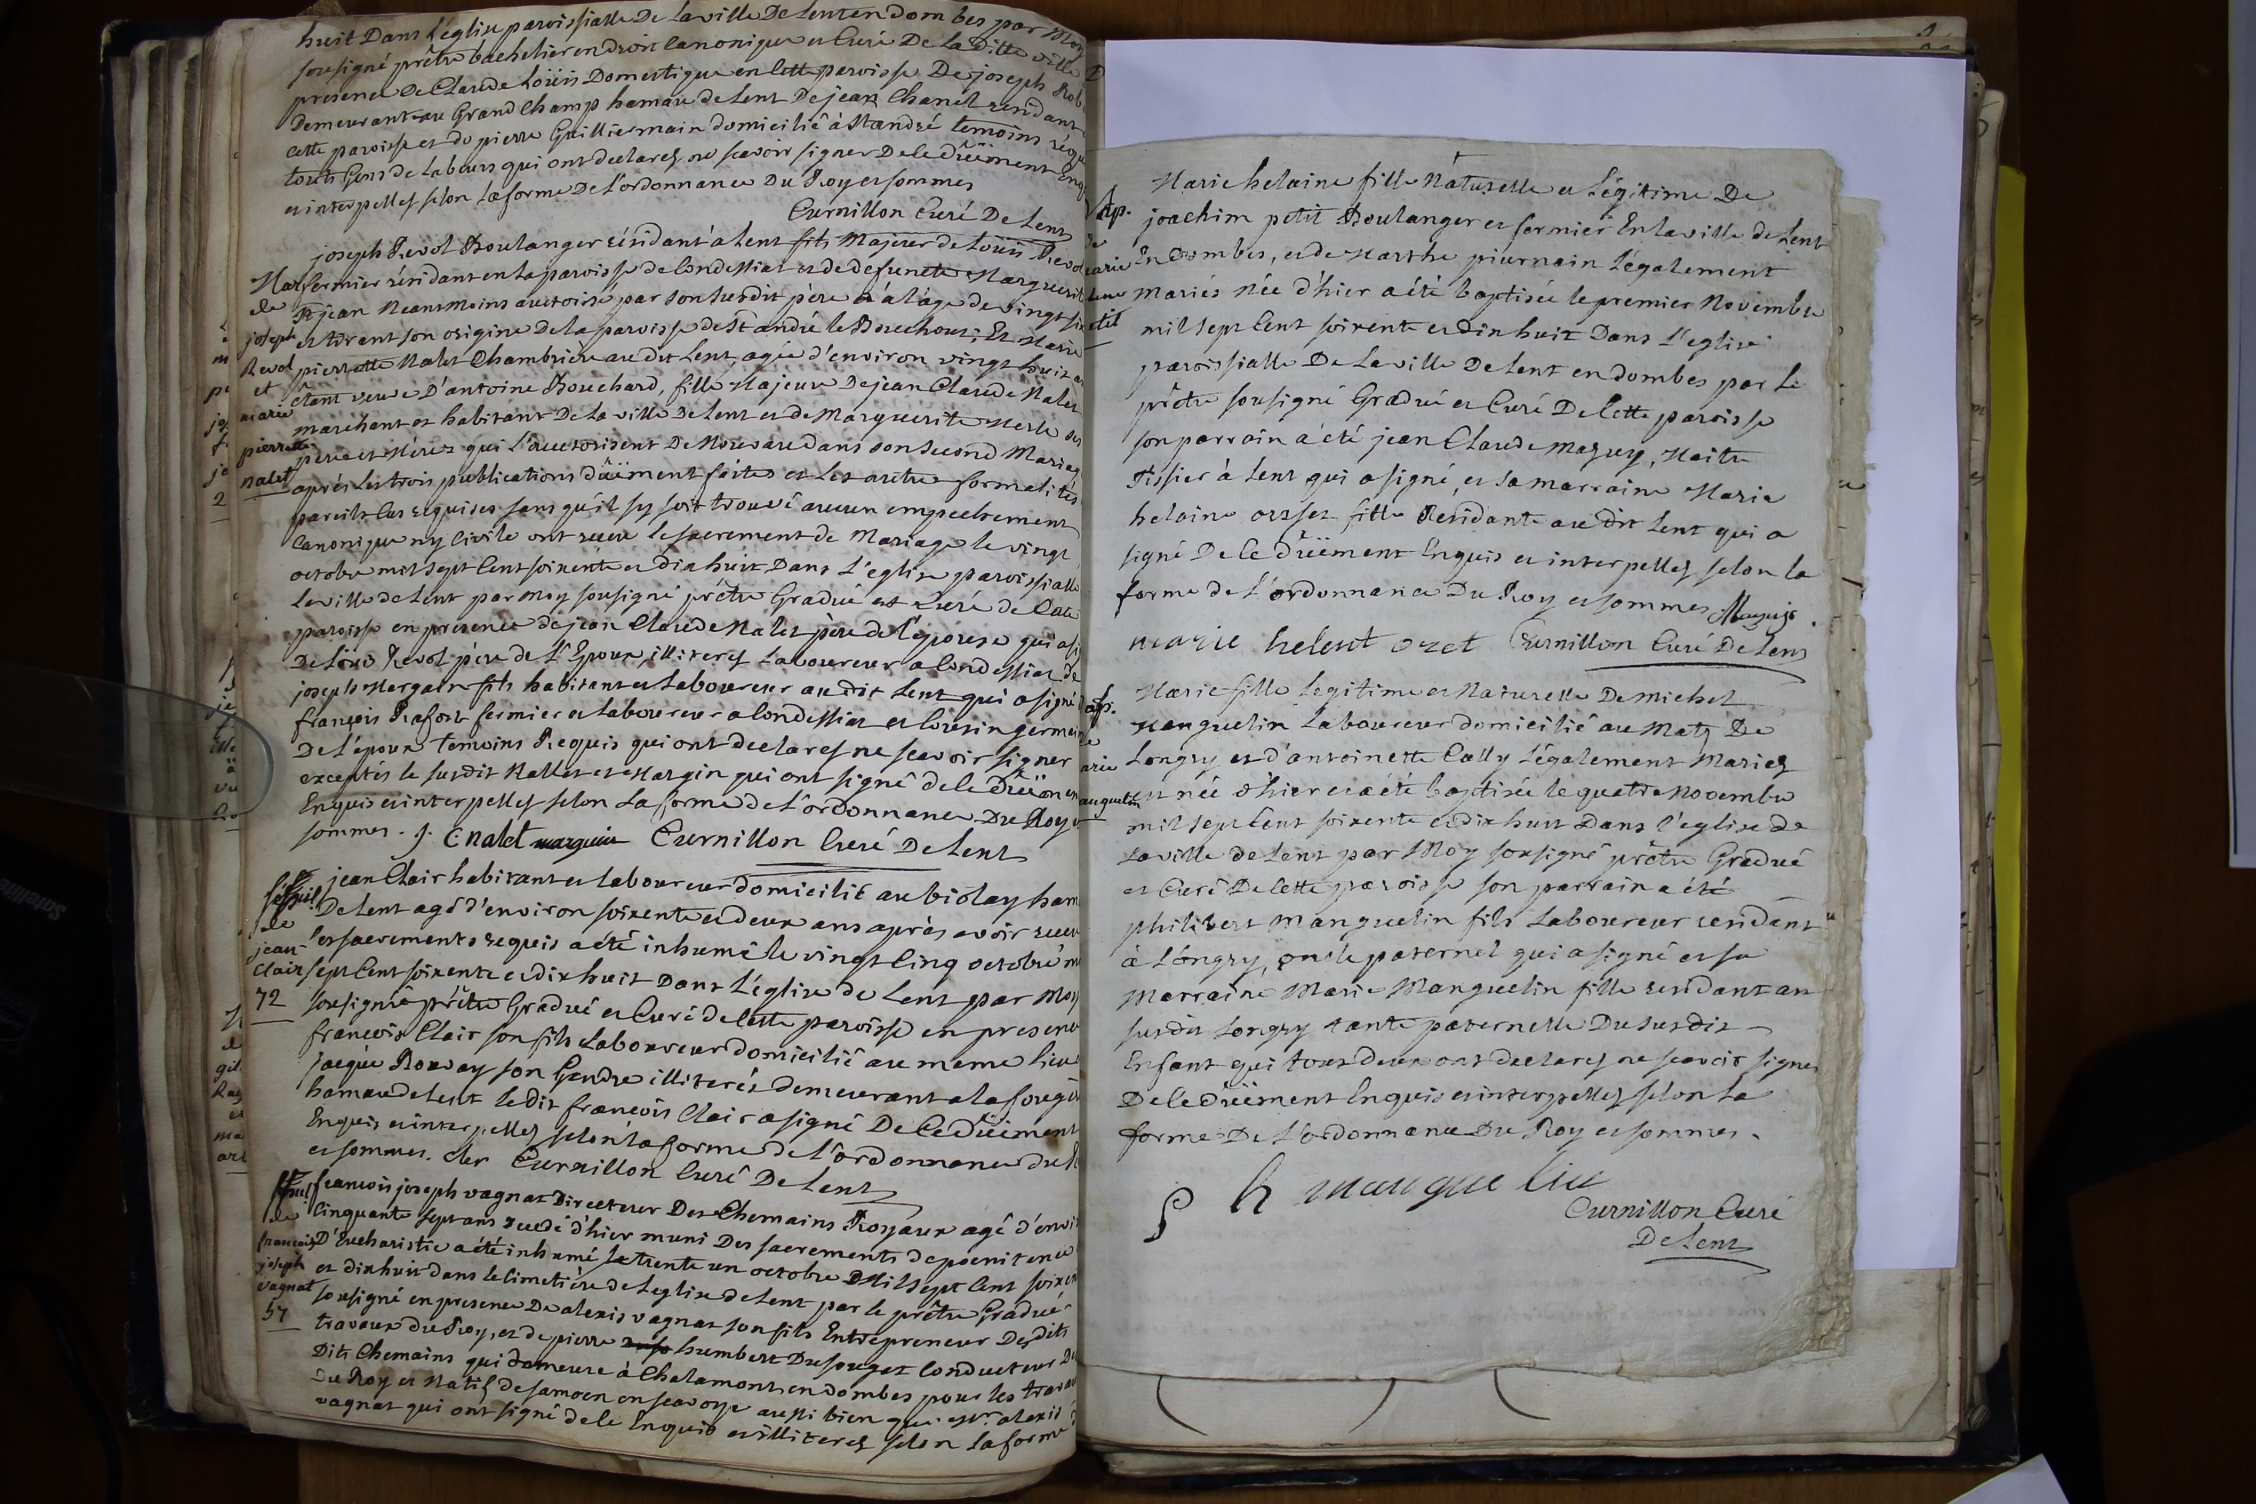 huit Dans l'église paroissialle De la ville De Lent en dombes par Moy
sousigné prêtre bachelier en droit Canonique et Curé De la Ditte ville
presence De Claude Loüis Domestique en Cette paroisse De joseph Rob
Demeurant au Grand Champ hamau de Lent De jean Chanel residant
cette paroisse et de pierre Guilliermain domicilié à St andré temoins réqu
touts Gens de Labours qui ont declarez ne scavoir signer De ce düëment Enq
et interpellez selon La forme De l'ordonnance Du Roy et sommes
Curnillon Curé De Lent
joseph Revol Boulanger résidant a Lent fils Majeur de Loüis Revol
fermier résidant en la paroisse de Condessiat et de defuncte Marguerit
jean Neansmoins auctorisé par son susdit père et a l'âge de vingt six
et tirant son origine De la paroisse de St andré le Bouchoux; Et Marie
pierrette Nalet Chambrière au dit Lent, agée d'environ vingt huit a
êtant veuve D'antoine Bouchard, fille Majeure De jean Claude Nalet
marchant et habitant De la ville De Lent et de Marguerite Merle ses
pere et Mère qui l'auctorisent De Nouveau dans son second Mariag
après les trois publications düëment faites et les autre formalités
pareils Cas requises sans qu'il sy soit trouvé aucun empechement
Canonique ny Civile ont recu le sacrement de Mariage le vingt
octobre mil sept Cent soixente et dix huit Dans L'eglise paroissialle
la ville de Lent par Moy sousigné prêtre Gradué et Curé de Cette
paroisse en presence de jean Claude Nalet père de l'épouse qui a si
De Loüis Revol père de L'Epoux, illiterez Laboureur a Condessiat de
joseph Margain fils habitant et Laboureur au dit Lent qui a signé
françois Rafort fermier et Laboureur a Condessiat et Cousin germain
De l'époux temoins Requis qui ont declarez ne scavoir signer
exceptés le susdit Nallet et Margin qui ont signé de Ce düëmen
Enquis et interpellez selon La forme de L'ordonnance Du Roy e
sommes. J. C nalet marguin Curnillon Curé De Lent
Mar
de
joseph
Revol
et
marie
pierrette
nalet
jean Clair habitant et laboureur domicilié au biolay ham
De Lent agé d'environ soixente et deux ans après avoir recu
les sacrements requis a été inhumé le vingt Cinq octobre m
sept Cent soixente et dix huit Dans L'église de Lent par Moy
sousigné prêtre Gradué et Curé de Cette paroisse en presence
françois Clair son fils Laboureur domicilié au meme lieu
jaeque Bouvay son Gendre illiterés demeurant a la
hamau de Lent le dit françois Clair a signé De Ce düëment
Enquis et interpellez selon la forme de L'ordonnance du R
et sommes. cler Curnillon Curé De Lent
Sépul.
de
jean
Clair
72
françois joseph vagnat Directeur Des Chemains Royaux agé d'envir
Cinquante sept ans decedé d'hier muni Des sacrements de poenitence
D'Eucharistie a été inhumé le trente un octobre Mil sept Cent soixen
et dix huit dans le Cimetière de L'eglise de Lent par le prêtre Gradué
sousigné en presence De alexis vagnat son fils Entrepreneur Desdits
travaux du Roy, et de pierre humbert Dusouget Conducteur De
Dits Chemains qui demeure à Chalamont en dombes pour les travau
Du Roy et Natif de samoen en scavoye aussi bien que sr. alexis
vagnat qui ont signé de Ce Enquis et illiterez selon la forme
de
françois
joseph
vagnat
57
Marie helaine fille Naturelle et Légitime De
joachim petit Boulanger et fermier En la ville de Lent
En Dombes, et de Marthe piurnain Légalement
mariés née d'hier a été baptisée le premier Novembre
mil sept Cent soixente et dix huit Dans L'eglise
paroissialle De La ville De Lent en dombes par le
prêtre sousigné Gradué et Curé De Cette paroisse
son parrain a été jean Claude Maguy, Maitre
Tissier à Lent qui a signé, et sa marraine Marie
helaine orset fille Residante au dit Lent qui a
signé De Ce düëment Enquis et interpellez selon la
forme de L'ordonnance Du Roy et sommes
marie helent oret Curnillon Curé De Lent
Bap.
Marie fille Legitime et Naturelle De Michel
Manguelin Laboureur domicilié au Matz De
Longry et d'antoinette Cally Légalement Mariez
est née d'hier et a été baptisée le quatre Novembre
mil sept Cent soixente et dix huit Dans l'eglise de
La ville de Lent par Moy sousigné prêtre Gradué
et Curé De Cette paroisse son parrain a été
philibert Manguelin fils Laboureur residant
à Longry, oncle paternel qui a signé et sa
Marraine Marie Manguelin fille residant au
susdit Longry tante paternelle Du susdit
Enfant qui tous deux ont declarez ne scavoir signer
De Ce düëment Enquis et interpellez selon La
forme De L'ordonnance Du Roy et sommes.
p h manguelin
Curnillon Curé
De Lent